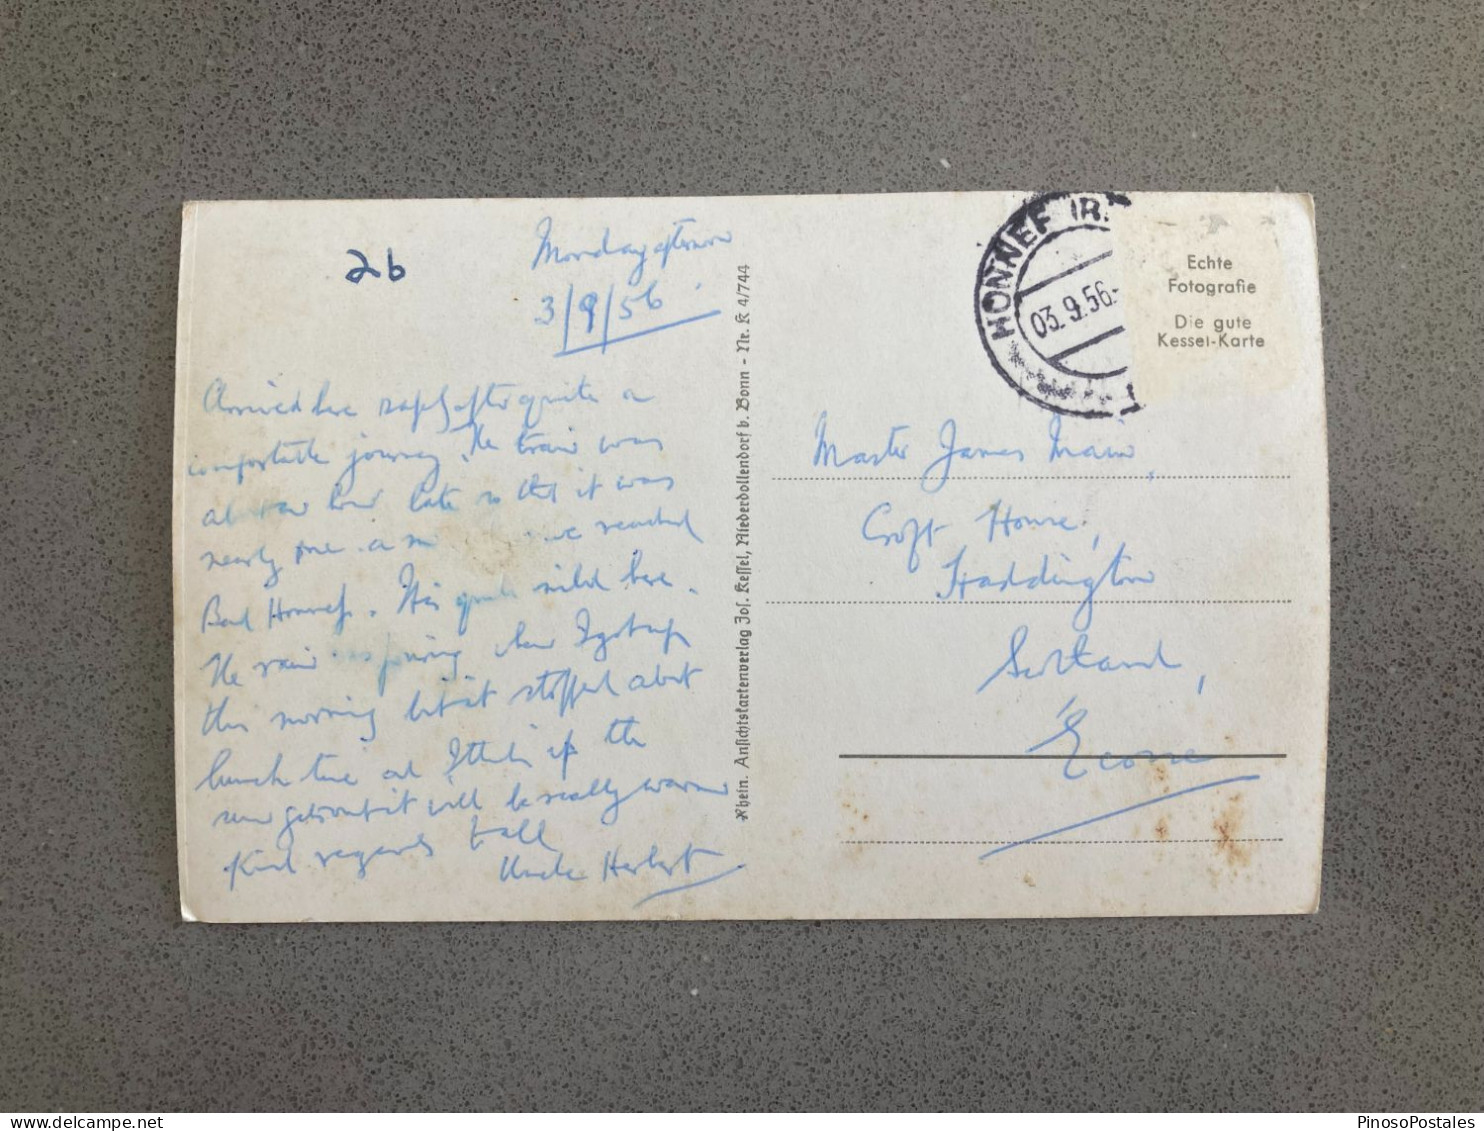 26
Monday afternoon
3/9/56.
Arrived here safely after quite a
comfortable journey. The train was
about an hour late so that it was
nearly one a.m. we reached
Bad Honnef. It is quite mild here.
The rain was pouring when I got up
this morning but it stopped about
lunch time and I think if the
sun gets out it will be really warm
Kind regards to all
Uncle Herbert
Rhein. Ansichtskartenverlag Jos. Kessel, Niederdollendorf b. Bonn - Nr. K 4/744
HONNEF (R
03.9.56.-
Echte
Fotografie
Die gute
Kessel-Karte
Master James Main,
Croft House,
Haddington
Scotland,
Ecosse
PinosoPostales.net
PinosoPostales